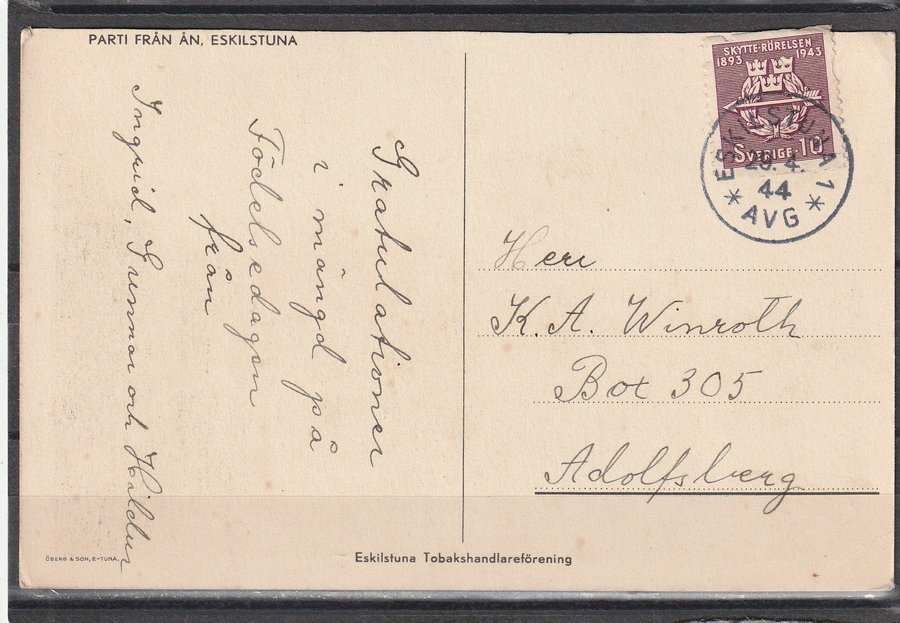 PARTI FRÅN ÅN, ESKILSTUNA
Gratulationer
i mängd på
Födelsedagen
från
Ingrid, Gunnar och Hildur
SKYTTE-RÖRELSEN
1893 1943
SVERIGE 10
ESKILSTUNA 1
29. 4.
44
* AVG *
Herr
K. A. Winroth
Box 305
Adolfsberg
ÖBERG & SON, E-TUNA.
Eskilstuna Tobakshandlareförening